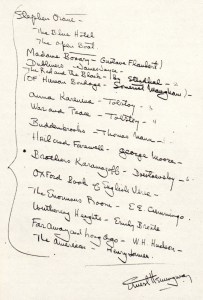 Stephen Crane -
- The Blue Hotel
- The Open Boat
Madame Bovary - Gustave Flaubert)
Dubliners - James Joyce -
The Red and the Black - (by Stendhal - "
(Of Human Bondage - Somerset Maugham) -
Anna Karenina - Tolstoy - "
War and Peace - Tolstoy - "
Buddenbrooks - Thomas Mann - "
Hail and Farewell - George Moore -
Brothers Karamazoff - Dostoevsky - "
Oxford Book of English Verse -
The Enormous Room - E.E. Cummings -
Wuthering Heights - Emily Bronte -
Far Away and Long Ago - W.H. Hudson -
The American - Henry James -
Ernest Hemingway